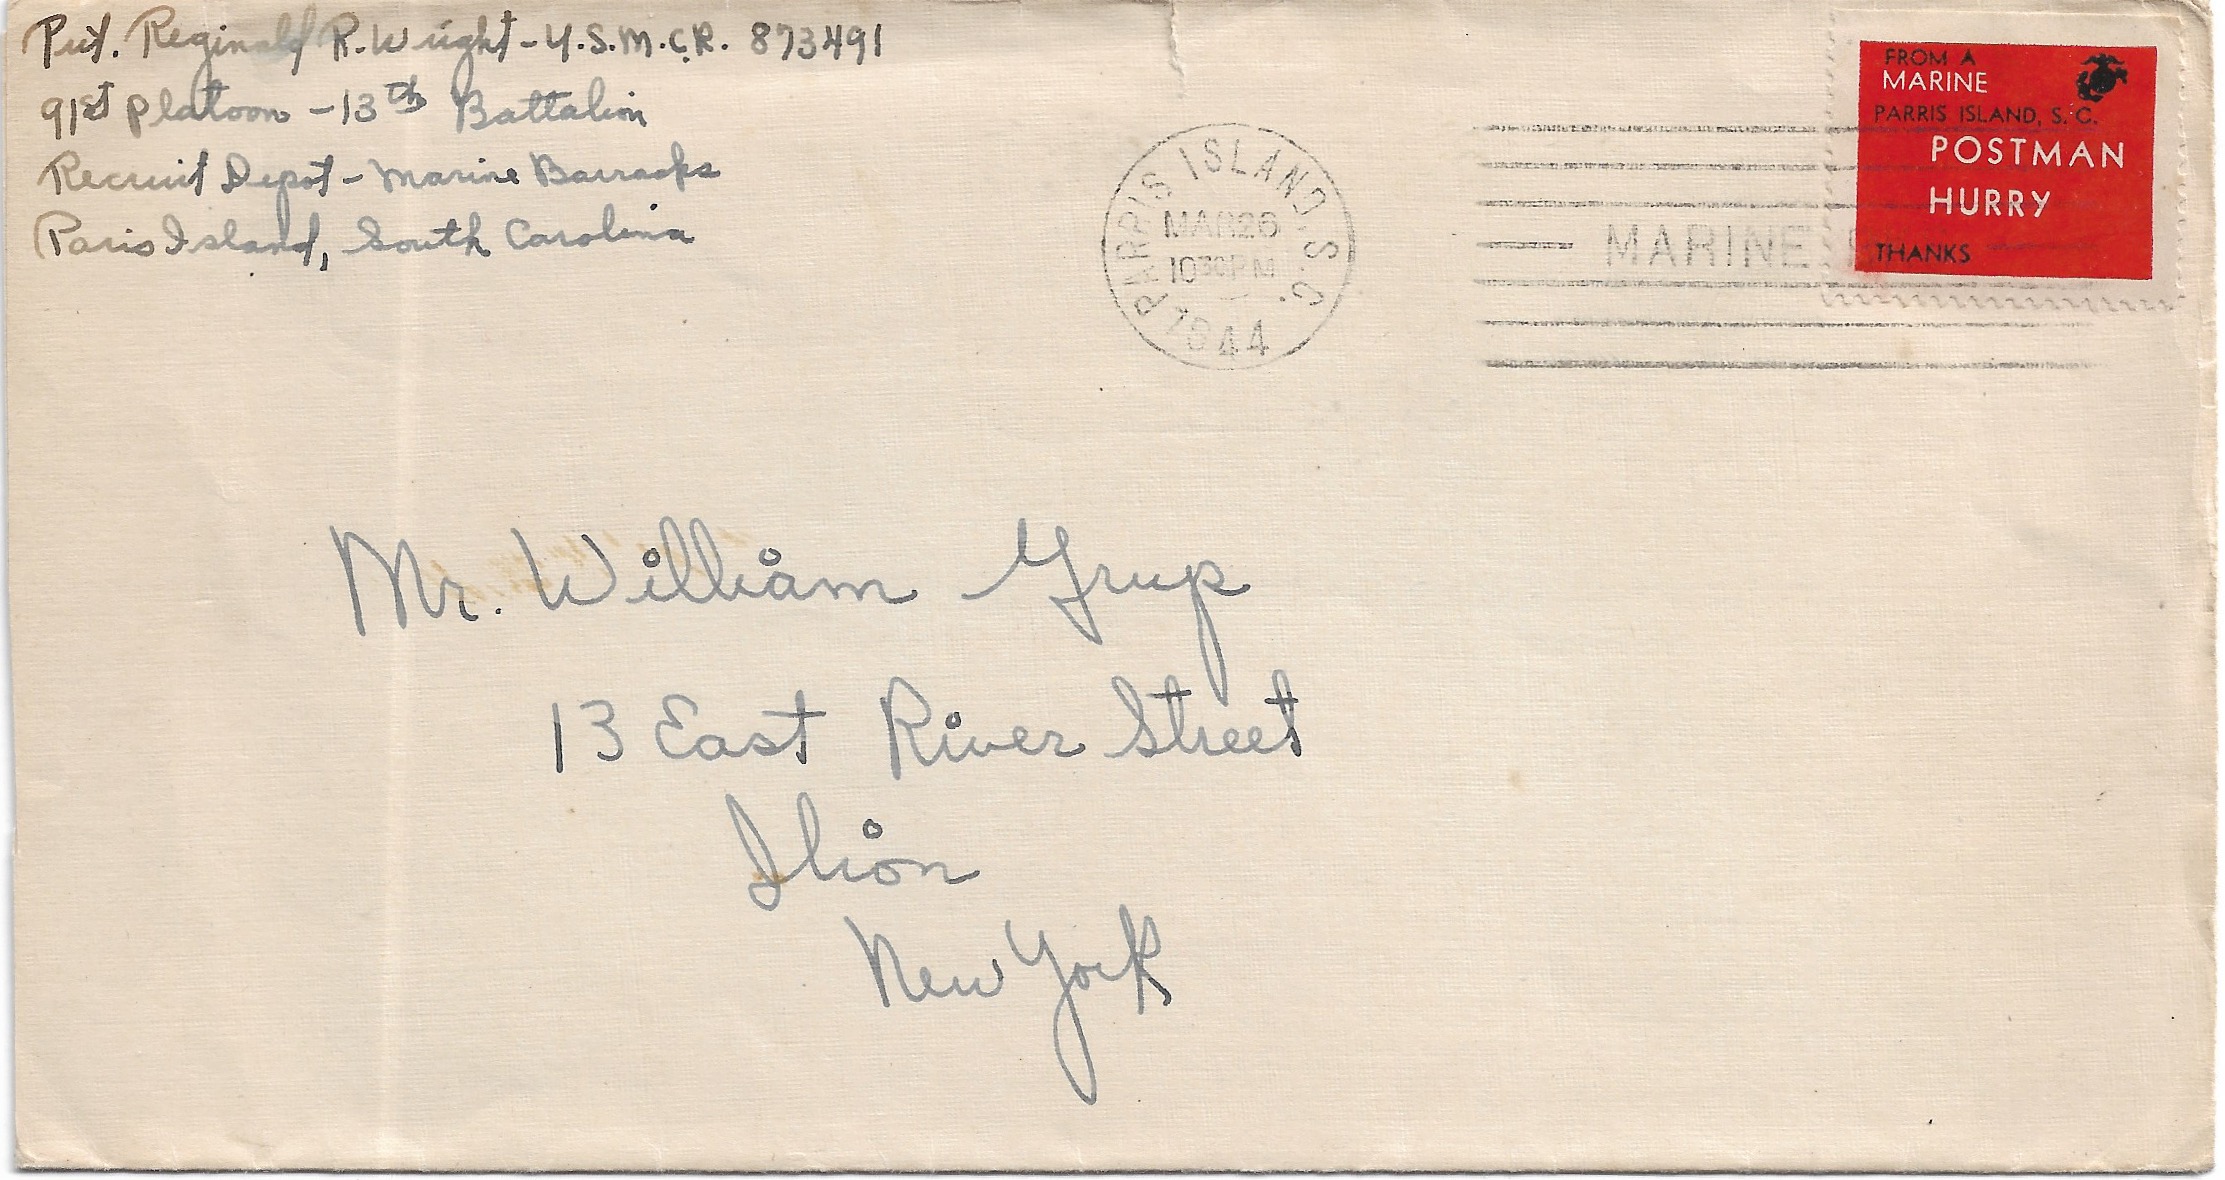 Pvt. Reginald R. Wright - U.S.M.C.R. 873491
91st Platoon - 13th Battalion
Recruit Depot - Marine Barracks
Paris Island, South Carolina
PARRIS ISLAND, S.C.
MAR 26
10 30 PM
1944
MARINE
FROM A
MARINE
PARRIS ISLAND, S. C.
POSTMAN
HURRY
THANKS
Mr. William Grup
13 East River Street
Ilion
New York